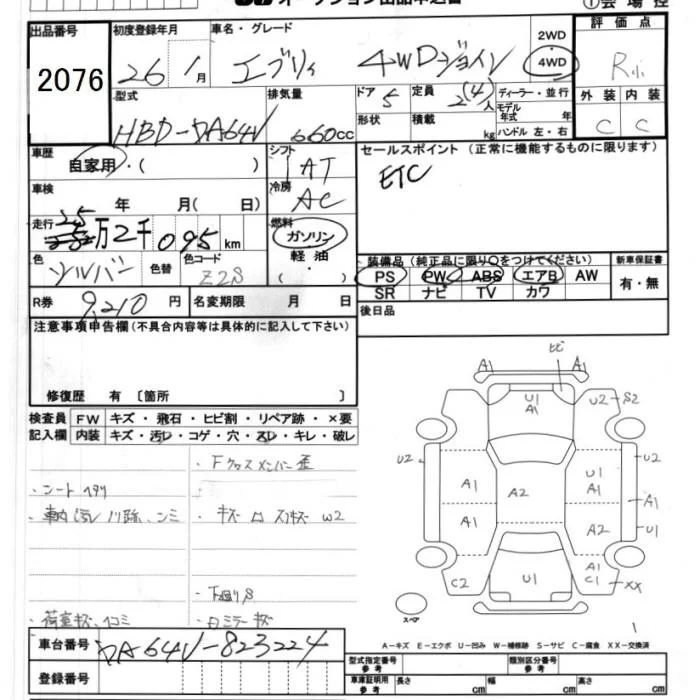 オークション出品申込書 ①会場控
出品番号 初度登録年月 車名・グレード 2WD 評価点
2076 26年1月 エブリィ 4WDジョイン 4WD R
型式 排気量 ドア 定員 ディーラー・並行 外装 内装
HBD-DA64V 660cc 5 2(4)人 モデル年式 年 C C
形状 積載 kg ハンドル 左・右
車歴 自家用・( ) シフト AT セールスポイント (正常に機能するものに限ります)
車検 年 月( 日) 冷房 AC ETC
走行 25万2千095km 燃料 ガソリン 軽油・( ) 装備品 (純正品に限り○をつけてください) 新車保証書
色 シルバー 色替 色コード Z2S PS PW ABS エアB AW 有・無
SR ナビ TV カワ
R券 9,210円 名変期限 月 日 後日品
注意事項申告欄(不具合内容等は具体的に記入して下さい)
修復歴 有 〔箇所 〕
検査員 FW キズ・飛石・ヒビ割・リペア跡・×要
記入欄 内装 キズ・汚レ・コゲ・穴・スレ・キレ・破レ
・Fクロスメンバー歪
・シートヘタリ
・キズ W2
・下廻りS
・荷室キズ、凹ミ ・ミラーキズ
ヒビ
A1 A1
U1 A1 U2 S2
U2 U2
A1 A2 U1 A1
A1 A1
A1 A2 U1
C2 U1 A1 C1 XX
スペア
1
A－キズ E－エクボ U－凹み W－補修跡 S－サビ C－腐食 XX－交換済
車台番号 DA64V-823224
登録番号
型式指定番号 参考 類別区分番号 参考
車庫証明用 参考 長さ cm 幅 cm 高さ cm